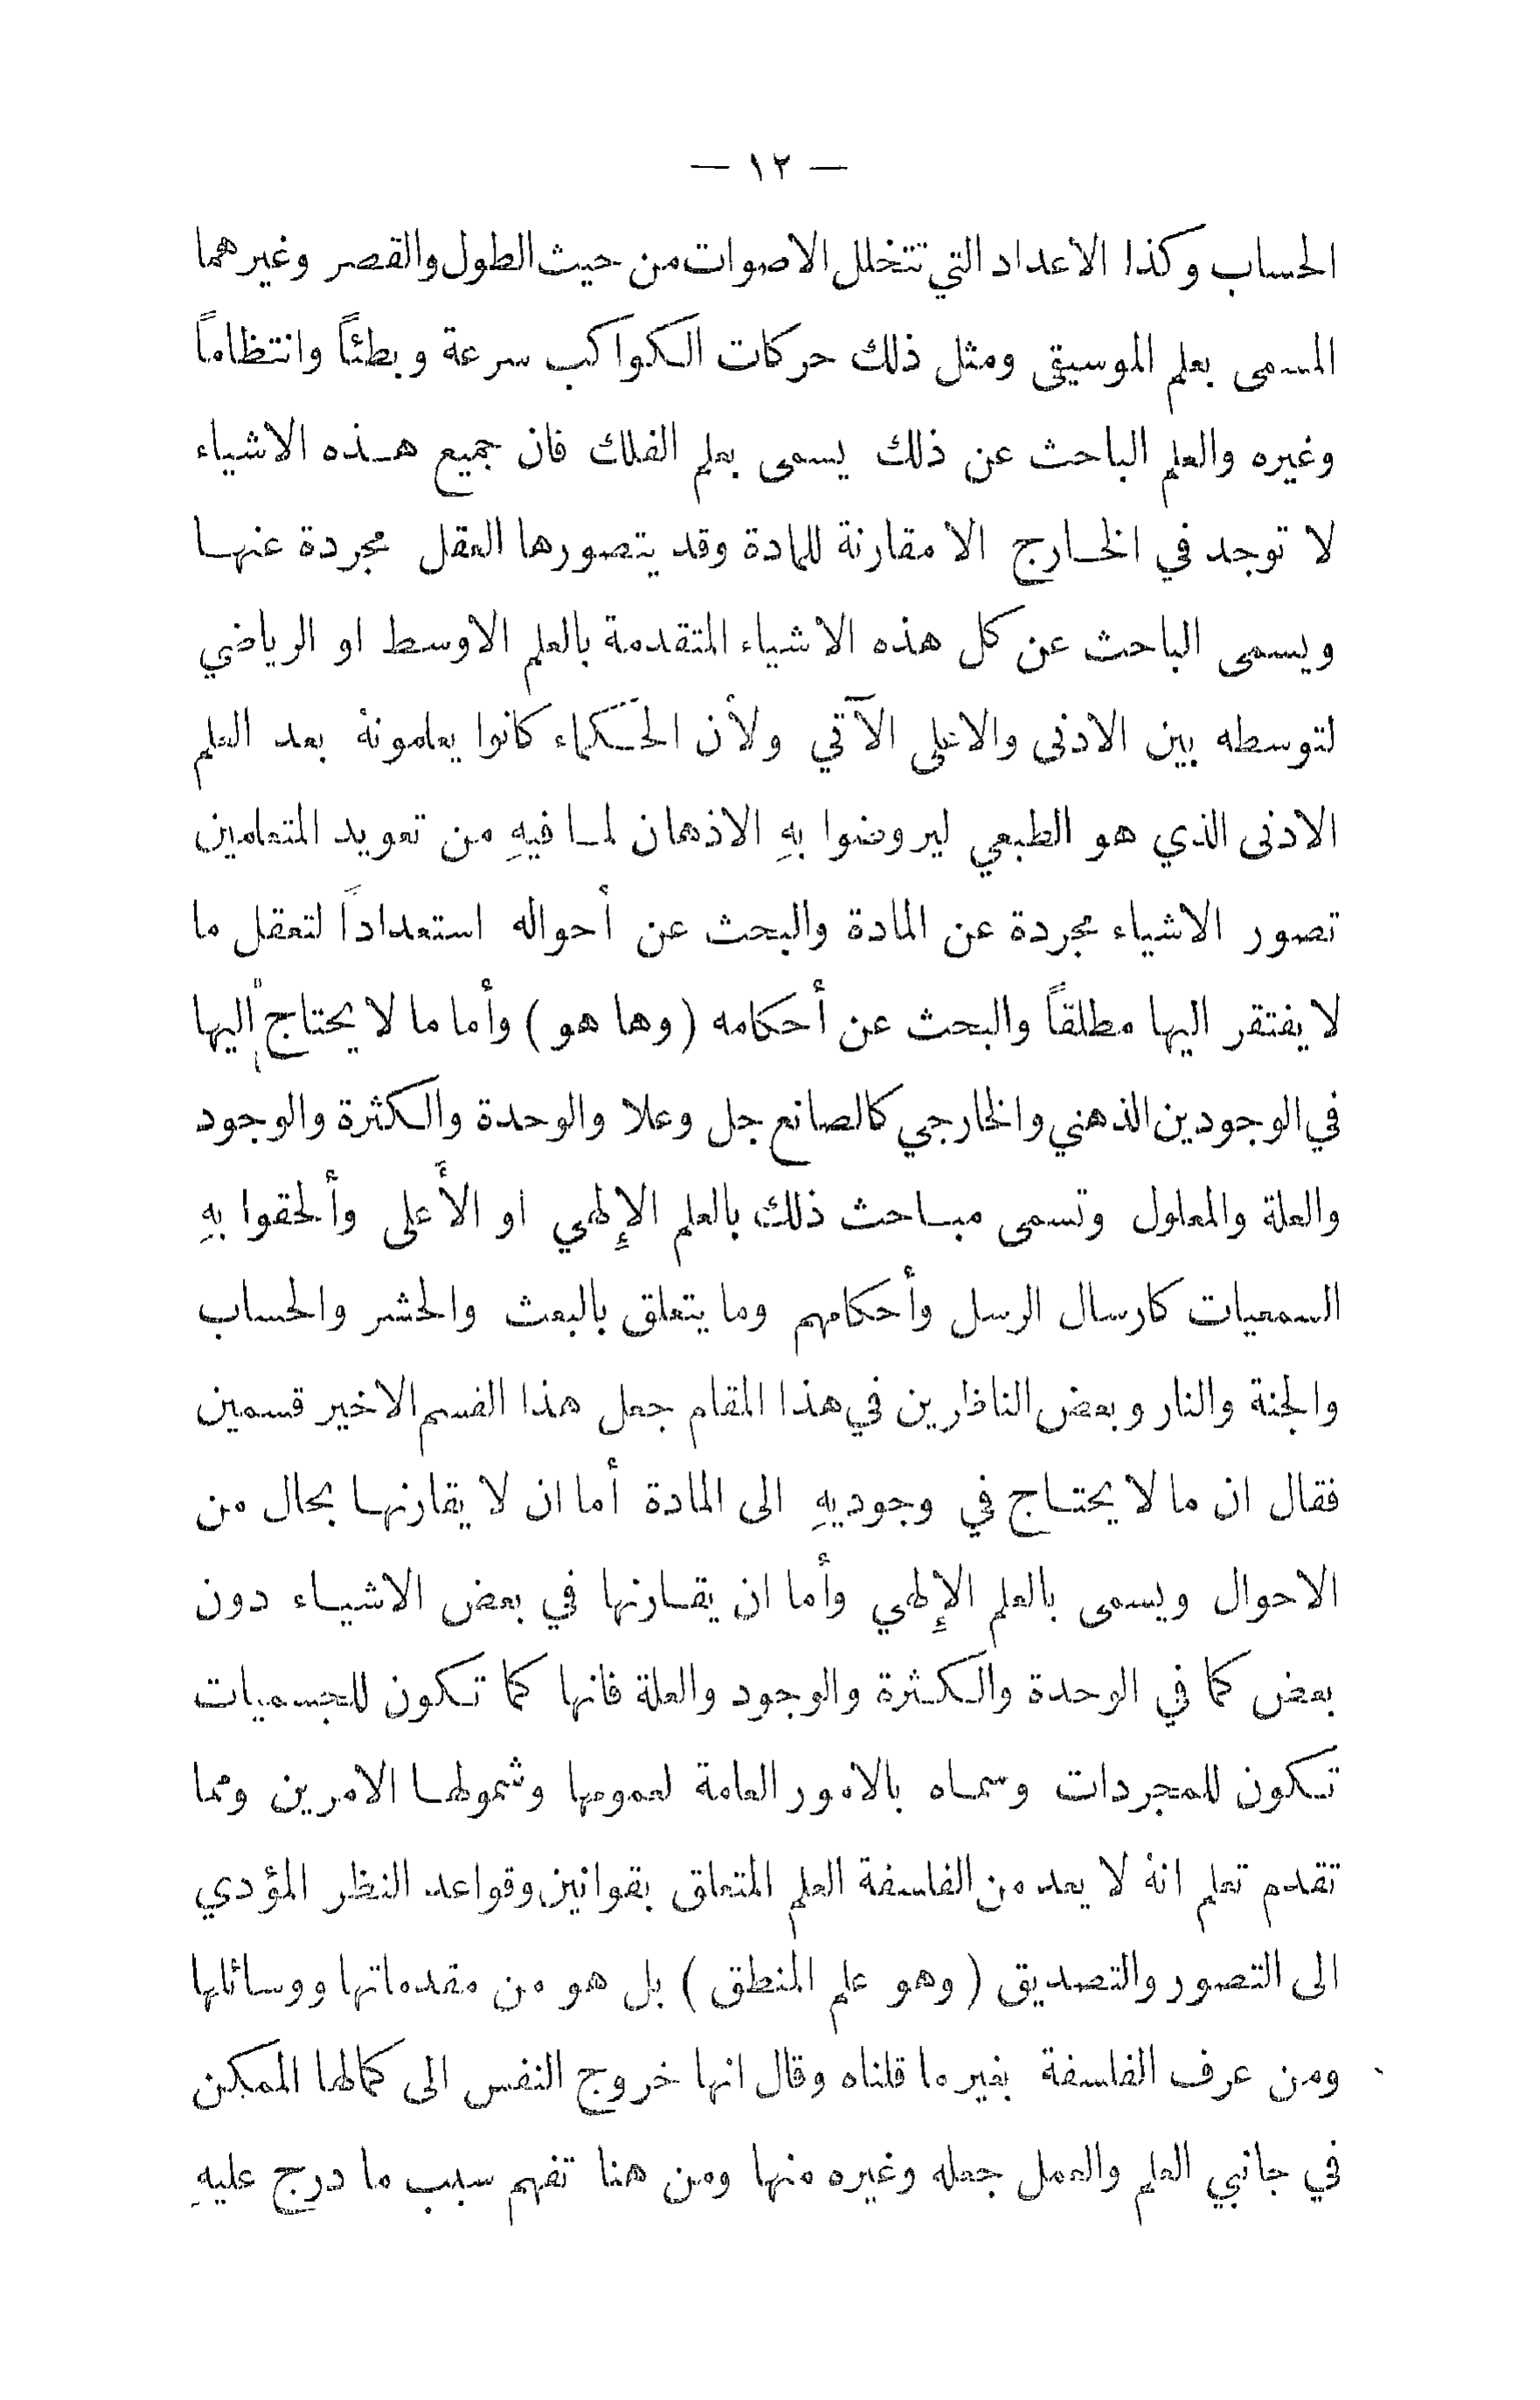 — ١٢ —
الحساب وكذا الاعداد التي تتخلل الاصوات من حيث الطول والقصر وغيرهما
المسمى بعلم الموسيقى ومثل ذلك حركات الكواكب سرعة وبطئاً وانتظاماً
وغيره والعلم الباحث عن ذلك يسمى بعلم الفلك فان جميع هـذه الاشياء
لا توجد في الخـارج الا مقارنة للمادة وقد يتصورها العقل مجردة عنهـا
ويسمى الباحث عن كل هذه الاشياء المتقدمة بالعلم الاوسط او الرياضي
لتوسطه بين الادنى والاعلى الآتي ولأن الحـكماء كانوا يعلمونهُ بعد العلم
الادنى الذي هو الطبعي ليروضوا بهِ الاذهان لمـا فيهِ من تعويد المتعلمين
تصور الاشياء مجردة عن المادة والبحث عن أحواله استعداداً لتعقل ما
لا يفتقر اليها مطلقاً والبحث عن أحكامه ( وها هو ) وأما ما لا يحتاج اليها
في الوجودين الذهني والخارجي كالصانع جل وعلا والوحدة والكثرة والوجود
والعلة والمعلول وتسمى مبـاحث ذلك بالعلم الإلهي او الأعلى وألحقوا بهِ
السمعيات كارسال الرسل وأحكامهم وما يتعلق بالبعث والحشر والحساب
والجنة والنار وبعض الناظرين في هذا المقام جعل هذا القسم الاخير قسمين
فقال ان ما لا يحتـاج في وجوديهِ الى المادة أما ان لا يقارنهـا بحال من
الاحوال ويسمى بالعلم الإلهي وأما ان يقـارنها في بعض الاشيـاء دون
بعض كما في الوحدة والكـثرة والوجود والعلة فانها كما تـكون للجسميات
تـكون للمجردات وسمـاه بالامور العامة لعمومها وشمولهـا الامرين ومما
تقدم تعلم انهُ لا يعد من الفلسفة العلم المتعلق بقوانين وقواعد النظر المؤدي
الى التصور والتصديق ( وهو علم المنطق ) بل هو من مقدماتها ووسائلها
ومن عرف الفلسفة بغير ما قلناه وقال انها خروج النفس الى كمالها الممكن
في جانبي العلم والعمل جعله وغيره منها ومن هنا تفهم سبب ما درج عليهِ